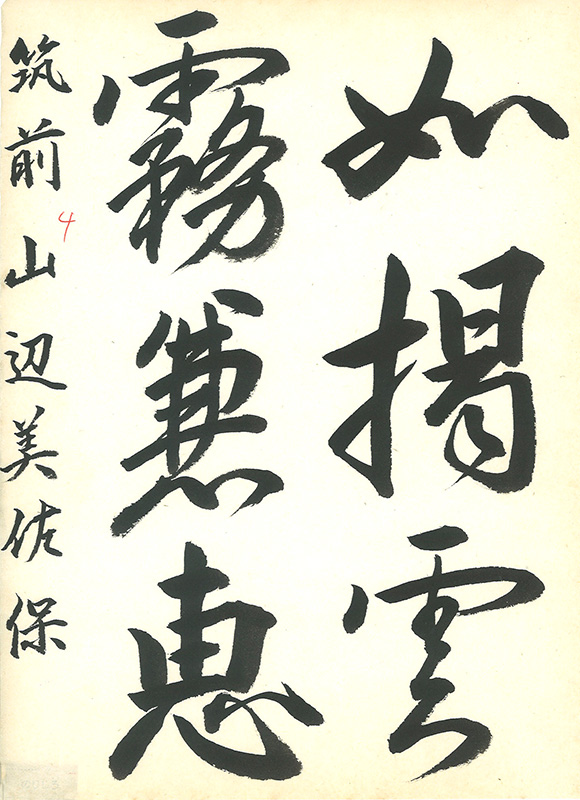 如揭雲
霧兼惠
筑前山辺美佐保
4